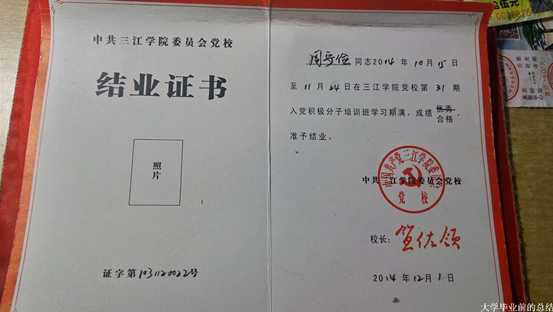 中共三江学院委员会党校
结业证书
照片
证字第103120022号
同志2014年10月15日
至11月24日在三江学院党校第31期
入党积极分子培训班学习期满，成绩优秀
合格
准予结业。
中国共产党三江学院委员会
党校
中共三江学院委员会党校
校长：
2014年12月1日
大学毕业前的总结